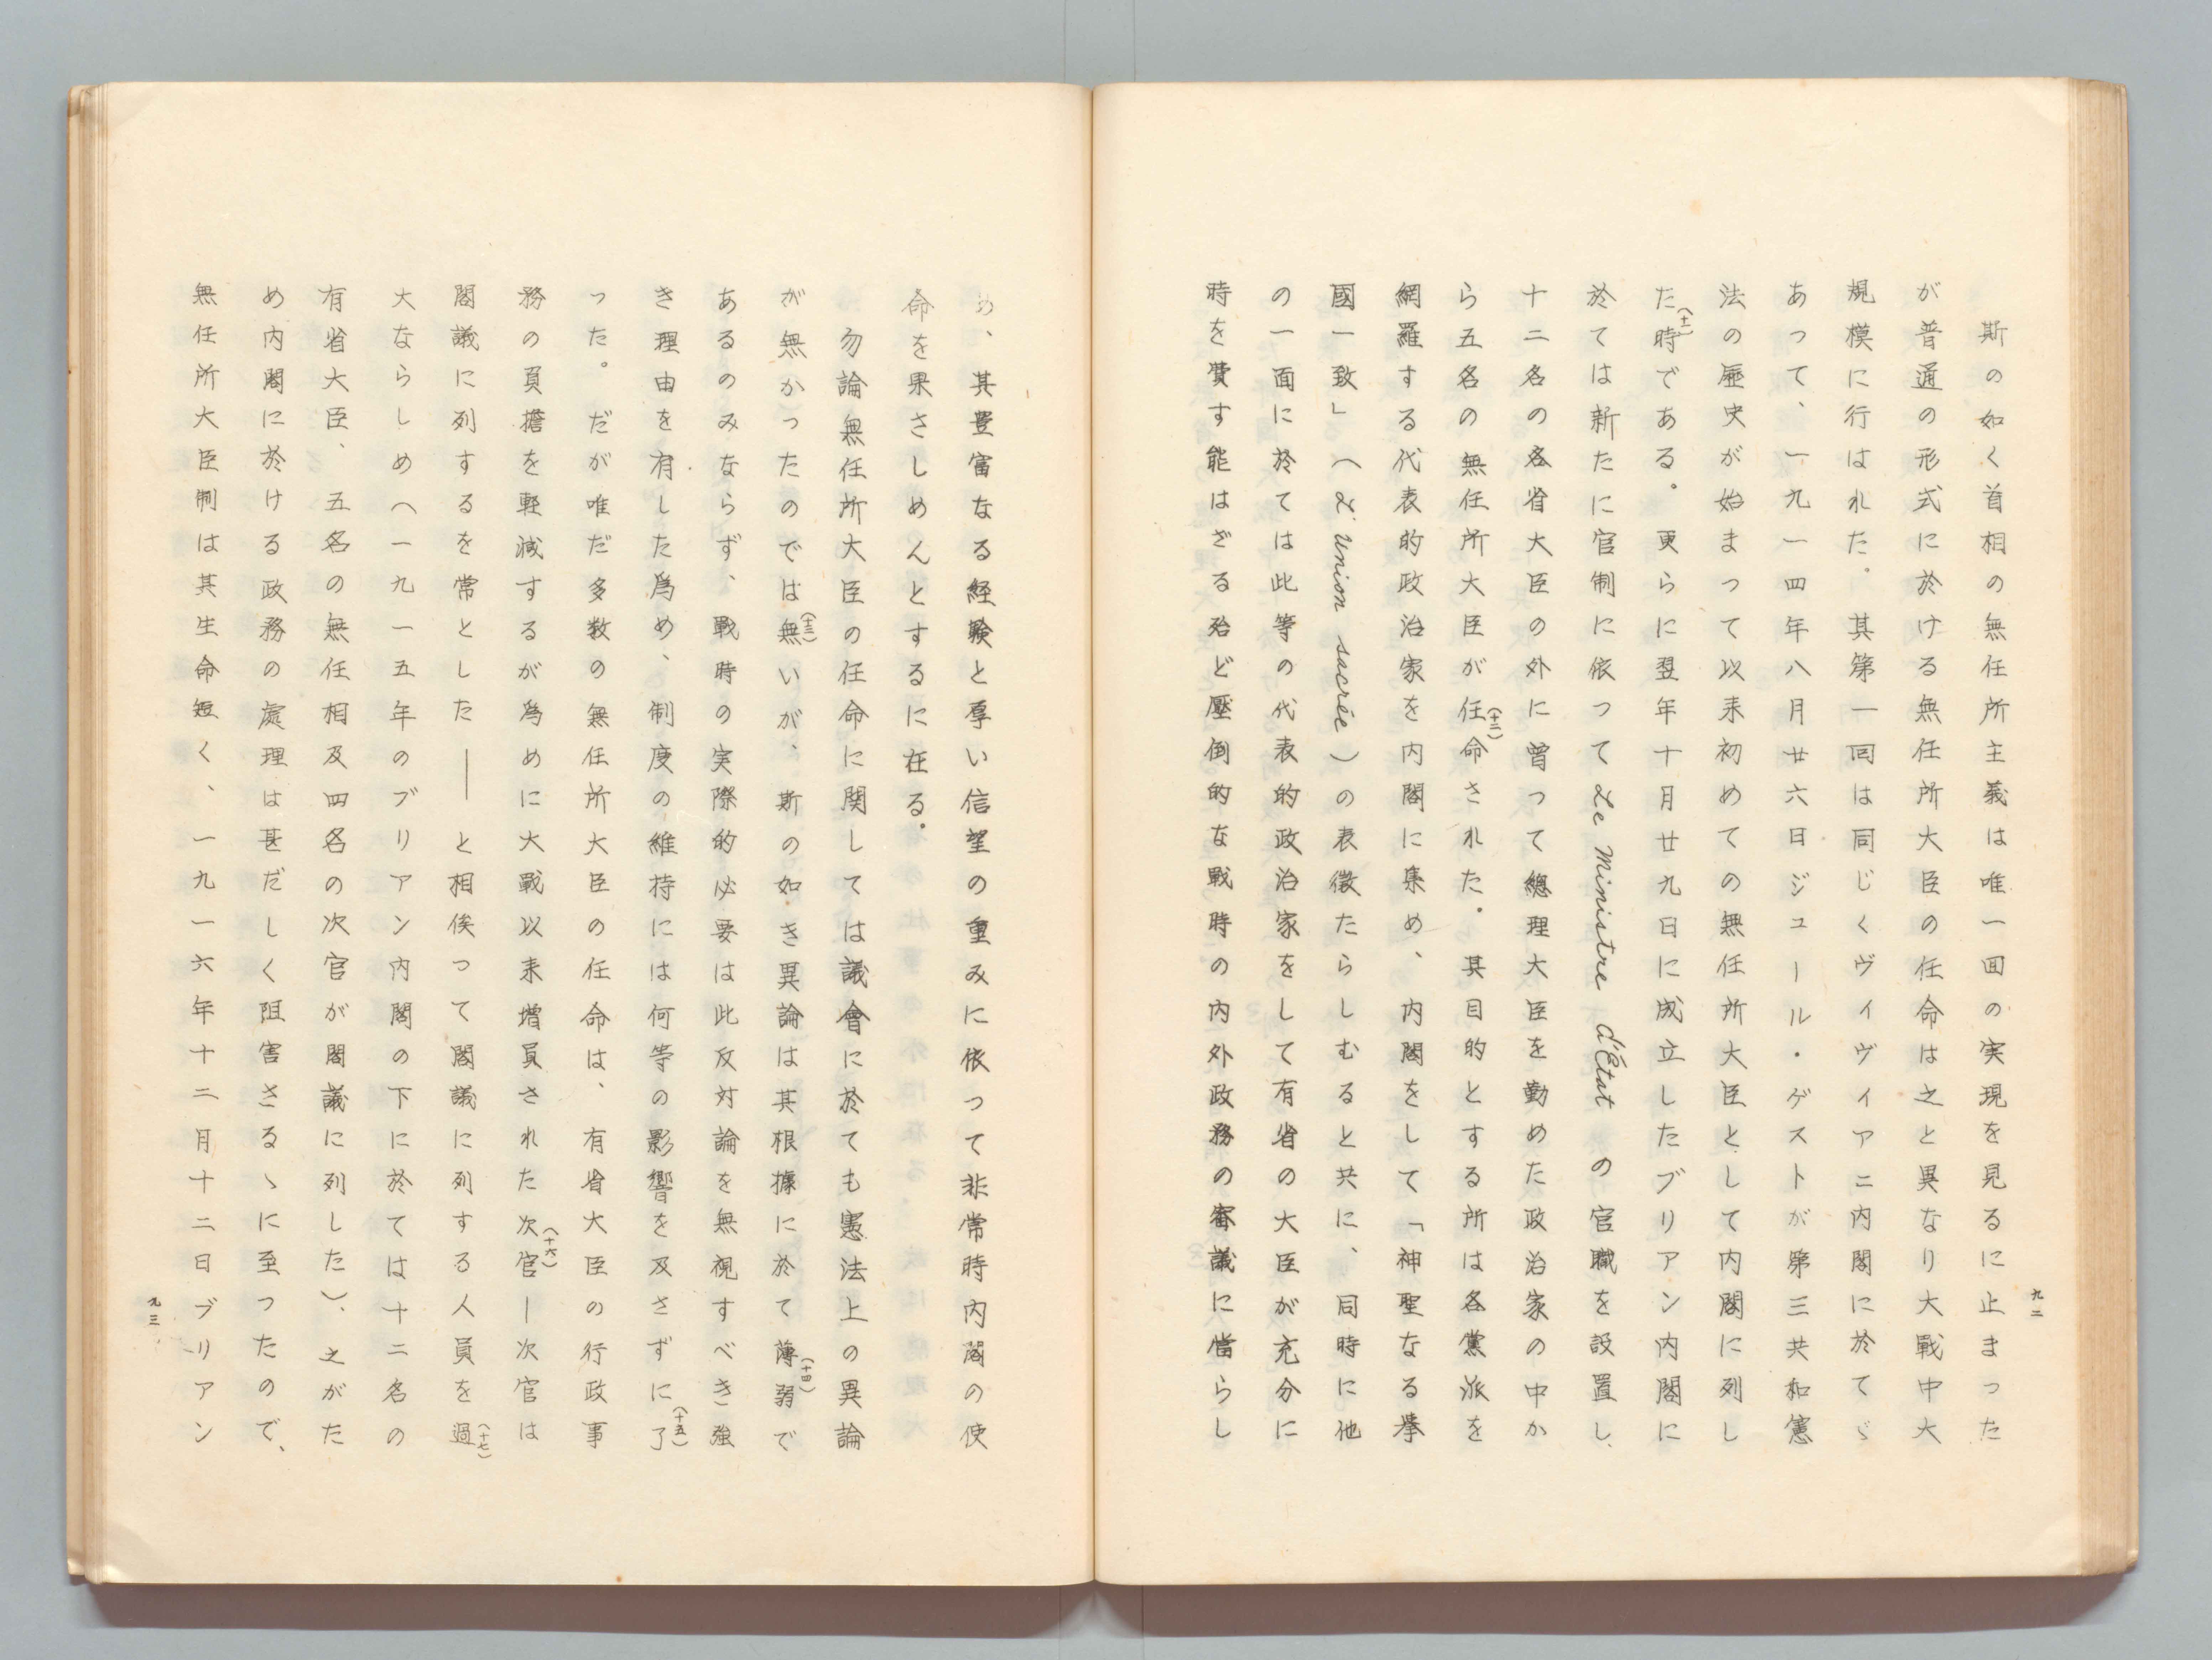 九二
斯の如く首相の無任所主義は唯一回の実現を見るに止まった
が普通の形式に於ける無任所大臣の任命は之と異なり大戦中大
規模に行はれた。其第一回は同じくヴィヴィアニ内閣に於てゞ
あって、一九一四年八月廿六日ジュール・ゲストが第三共和憲
法の歴史が始まって以来初めての無任所大臣として内閣に列し
た時(十一)である。更らに翌年十月廿九日に成立したブリアン内閣に
於ては新たに官制に依って Le Ministre d'État の官職を設置し、
十二名の各省大臣の外に曽って總理大臣を勤めた政治家の中か
ら五名の無任所大臣が任命(十二)された。其目的とする所は各黨派を
網羅する代表的政治家を内閣に集め、内閣をして「神聖なる挙
國一致」(L'Union sacrée)の表徴たらしむると共に、同時に他
の一面に於ては此等の代表的政治家をして有省の大臣が充分に
時を費す能はざる殆ど壓倒的な戦時の内外政務の審議に當らし
め、其豊富なる経験と厚い信望の重みに依って非常時内閣の使
命を果さしめんとするに在る。
勿論無任所大臣の任命に関しては議會に於ても憲法上の異論
が無かったのでは無(十三)いが、斯の如き異論は其根據に於て薄弱(十四)で
あるのみならず、戦時の実際的必要は此反対論を無視すべき強
き理由を有した為め、制度の維持には何等の影響を及さずに了(十五)
った。だが唯だ多数の無任所大臣の任命は、有省大臣の行政事
務の負擔を軽減するが為めに大戦以来増員された次官(十六)―次官は
閣議に列するを常とした――と相俟つて閣議に列する人員を過(十七)
大ならしめ(一九一五年のブリアン内閣の下に於ては十二名の
有省大臣、五名の無任相及四名の次官が閣議に列した)、之がた
め内閣に於ける政務の處理は甚だしく阻害さるゝに至つたので、
無任所大臣制は其生命短く、一九一六年十二月十二日ブリアン
九三